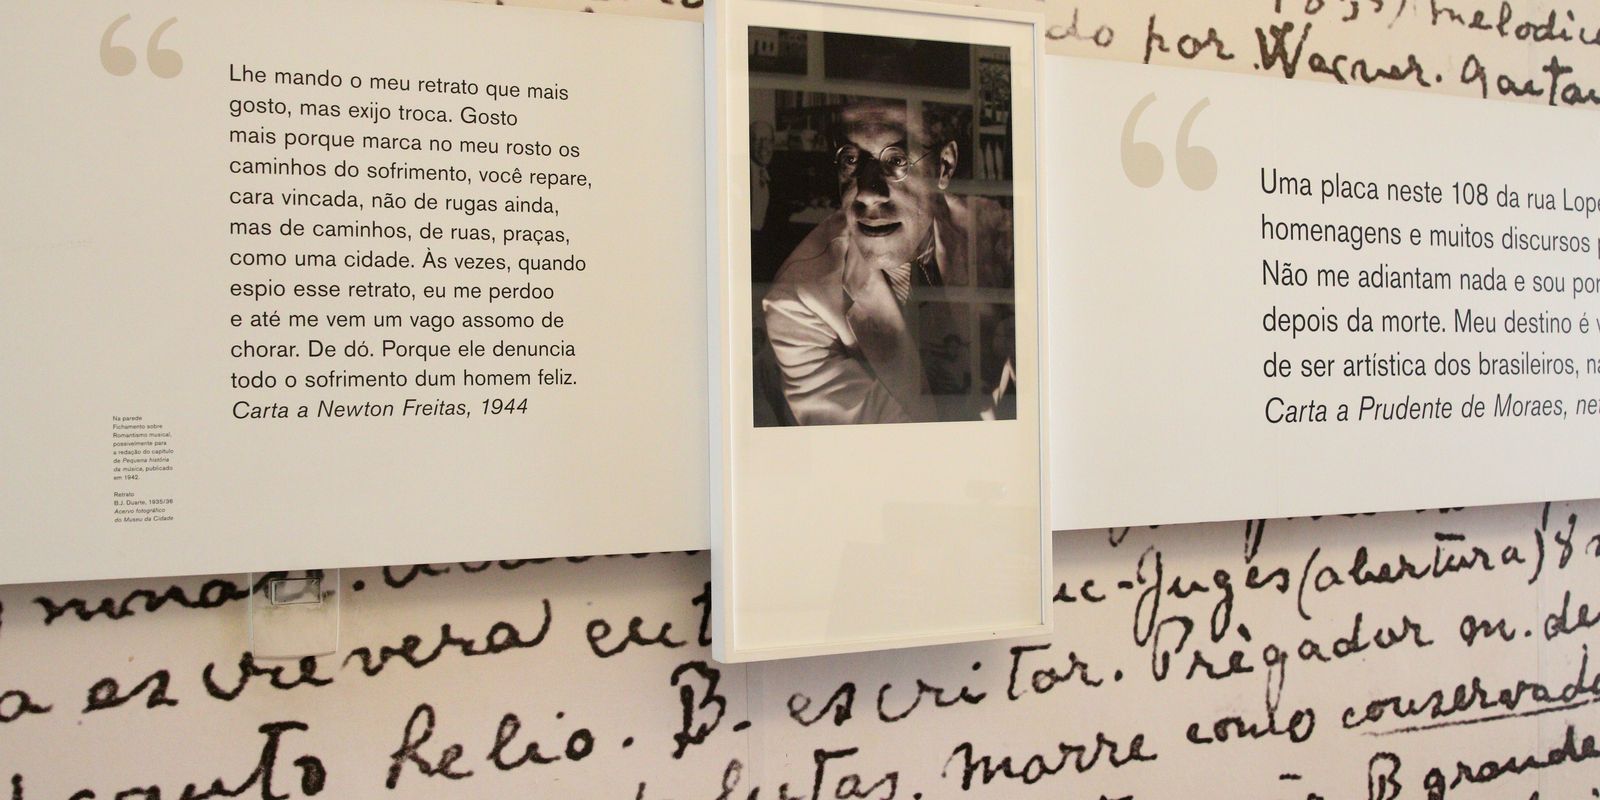 “
Lhe mando o meu retrato que mais
gosto, mas exijo troca. Gosto
mais porque marca no meu rosto os
caminhos do sofrimento, você repare,
cara vincada, não de rugas ainda,
mas de caminhos, de ruas, praças,
como uma cidade. Às vezes, quando
espio esse retrato, eu me perdoo
e até me vem um vago assomo de
chorar. De dó. Porque ele denuncia
todo o sofrimento dum homem feliz.
Carta a Newton Freitas, 1944
Na parede
Fichamento sobre
Romantismo musical,
possivelmente para
a redação do capítulo
de Pequena história
da música, publicado
em 1942.
Retrato
B.J. Duarte, 1935/36
Acervo fotográfico
do Museu da Cidade
“
Uma placa neste 108 da rua
homenagens e muitos discursos
Não me adiantam nada e sou
depois da morte. Meu destino é
de ser artística dos brasileiros,
Carta a Prudente de Moraes,
do por Wagner.
(abertura)
escrevera
escritor. Prègador m. de
helio. B.
Marre como
B grande